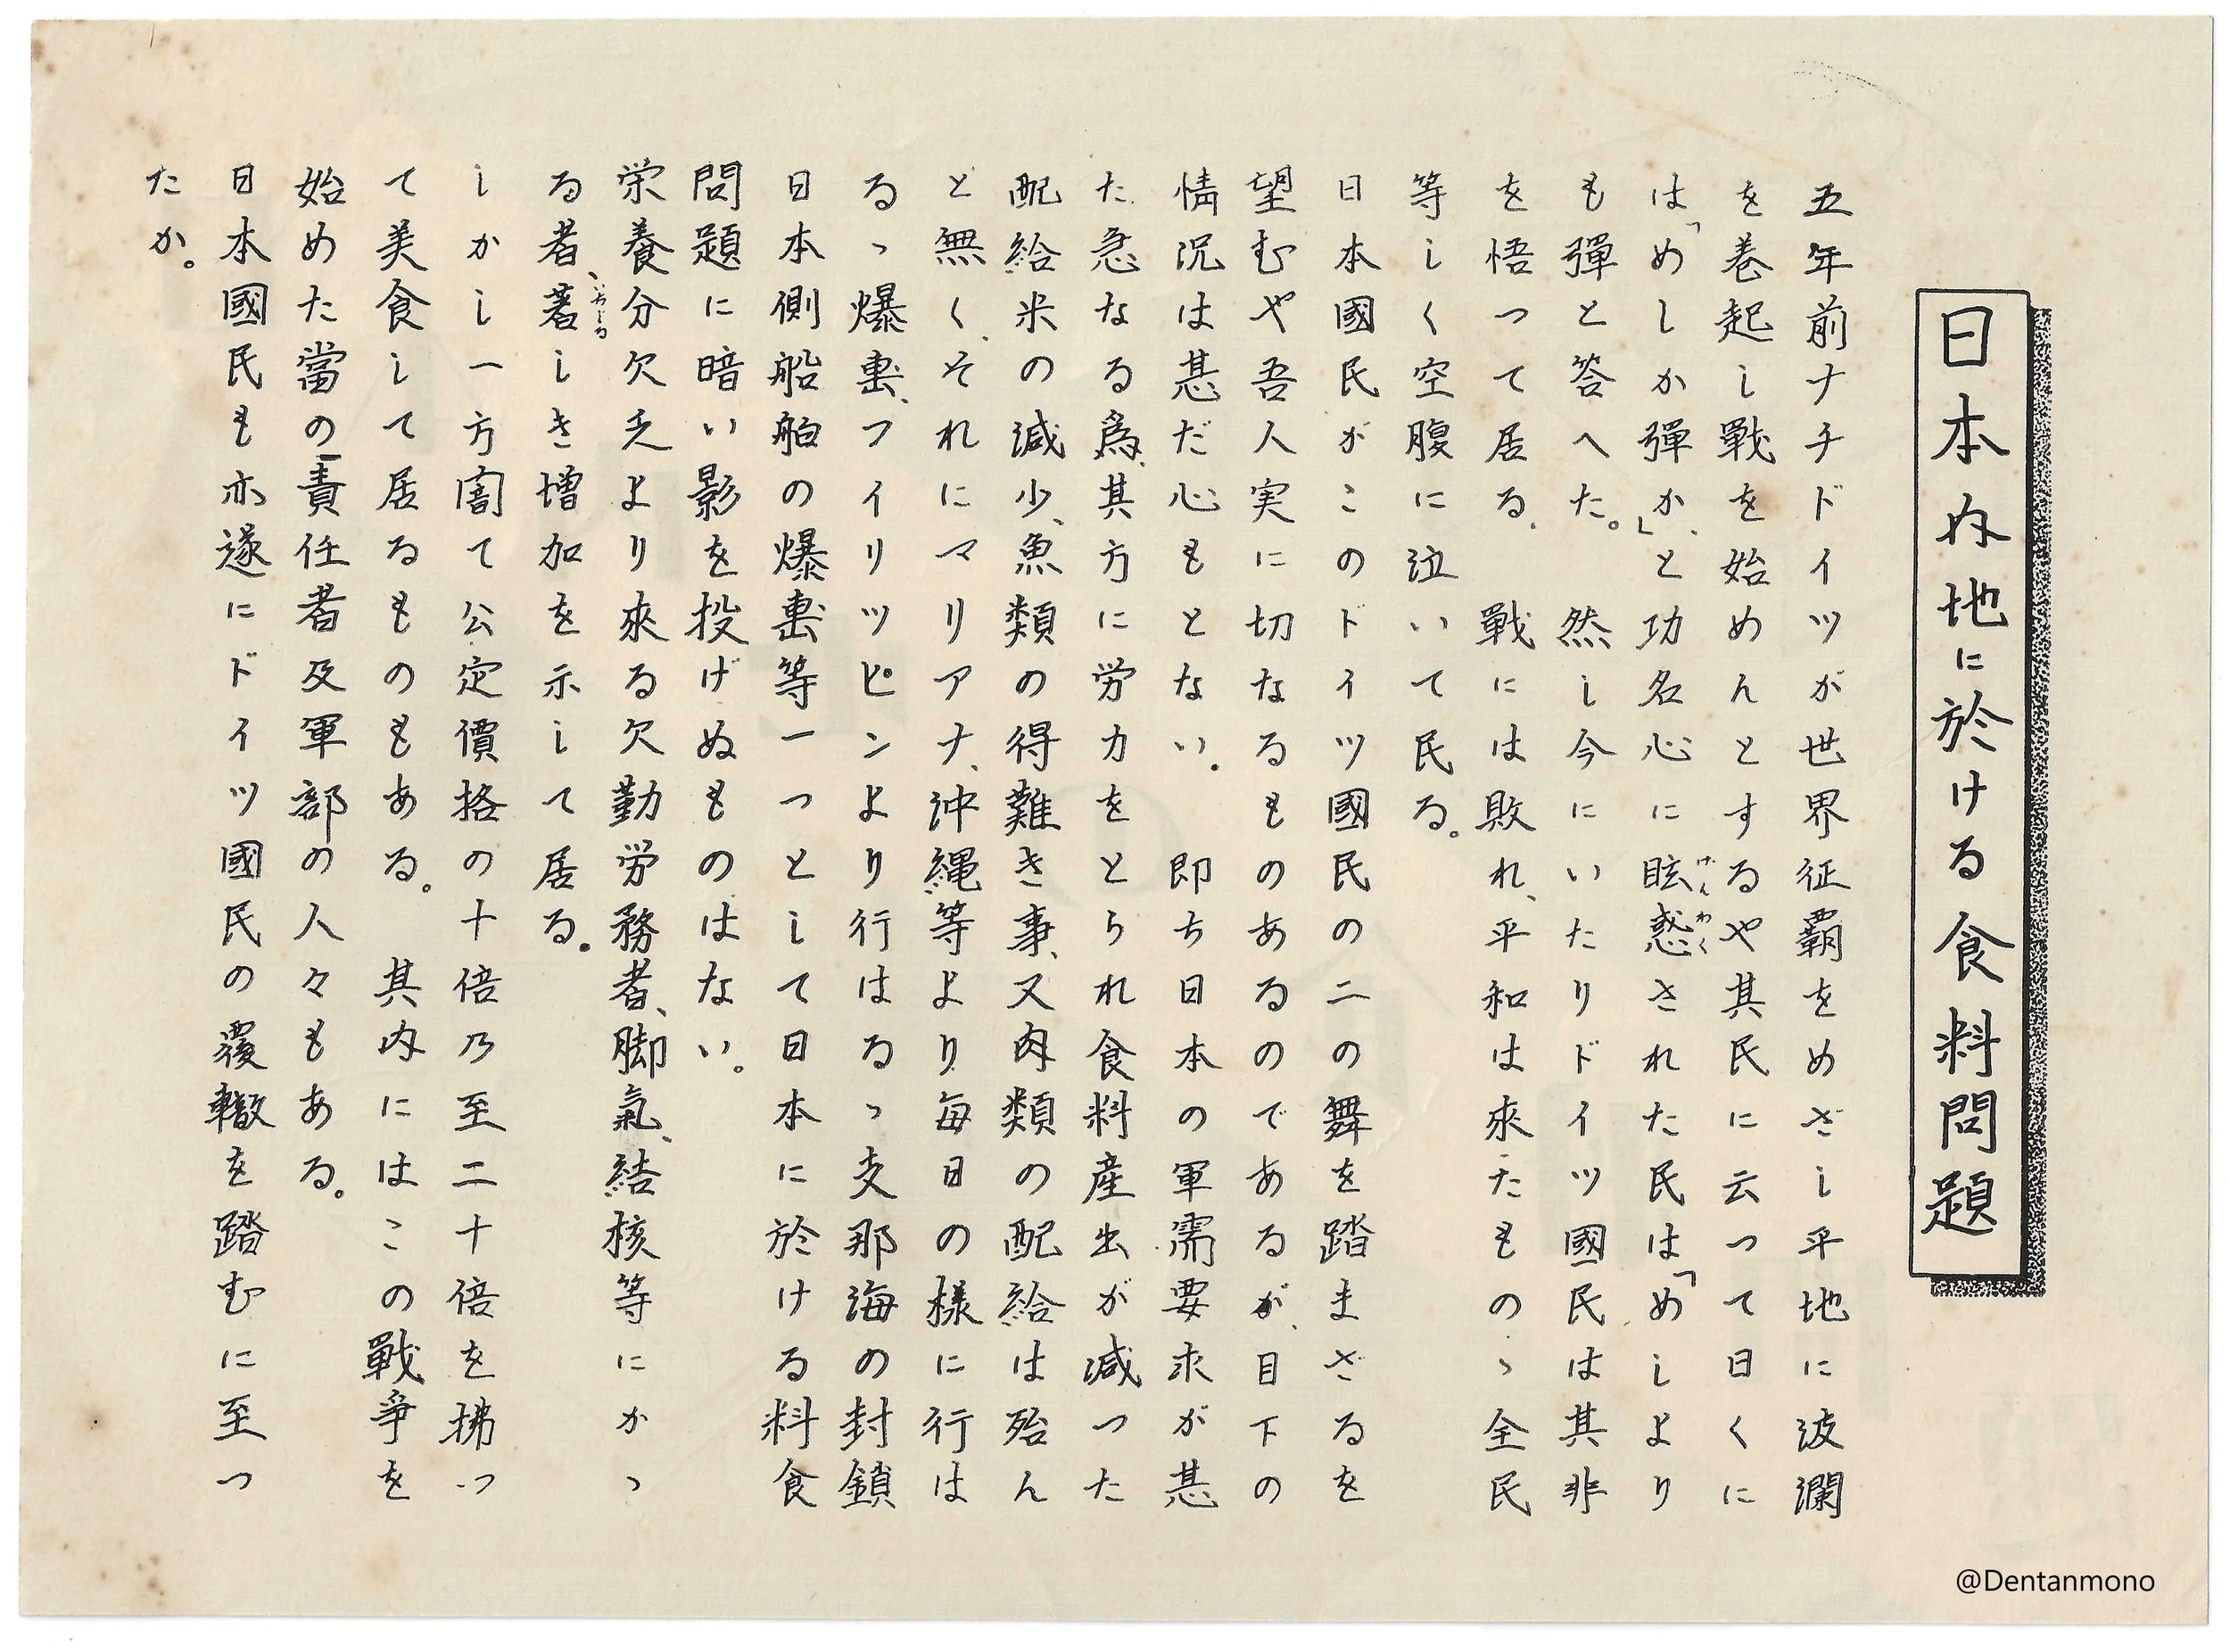 日本内地に於ける食料問題
五年前ナチドイツが世界征覇をめざし平地に波瀾
を巻起し戰を始めんとするや其民に云つて日くに
は「めしか彈か、」と功名心に眩惑された民は「めしより
けんわく
も彈と答へた。　然し今にいたりドイツ國民は其非
を悟つて居る、　戰には敗れ、平和は來たものゝ全民
等しく空腹に泣いて民る。
日本國民がこのドイツ國民の二の舞を踏まざるを
望むや吾人実に切なるものあるのであるが、目下の
情況は甚だ心もとない。　即ち日本の軍需要求が甚
た急なる爲、其方に労力をとられ食料産出が減つた
配給米の減少、魚類の得難き事、又肉類の配給は殆ん
と無く、それにマリアナ、沖縄等より毎日の様に行は
るゝ爆撃、フイリツピンより行はるゝ支那海の封鎖
日本側船舶の爆撃等一つとして日本に於ける料食
問題に暗い影を投げぬものはない。
栄養分欠乏より來る欠勤労務者、脚氣、結核等にかゝ
る者、著しき増加を示して居る。
いちじる
しかし一方闇て公定價格の十倍乃至二十倍を拂つ
て美食して居るものもある。　其内にはこの戰爭を
始めた當の責任者及軍部の人々もある。
日本國民も亦遂にドイツ國民の覆轍を踏むに至つ
たか。
@Dentanmono